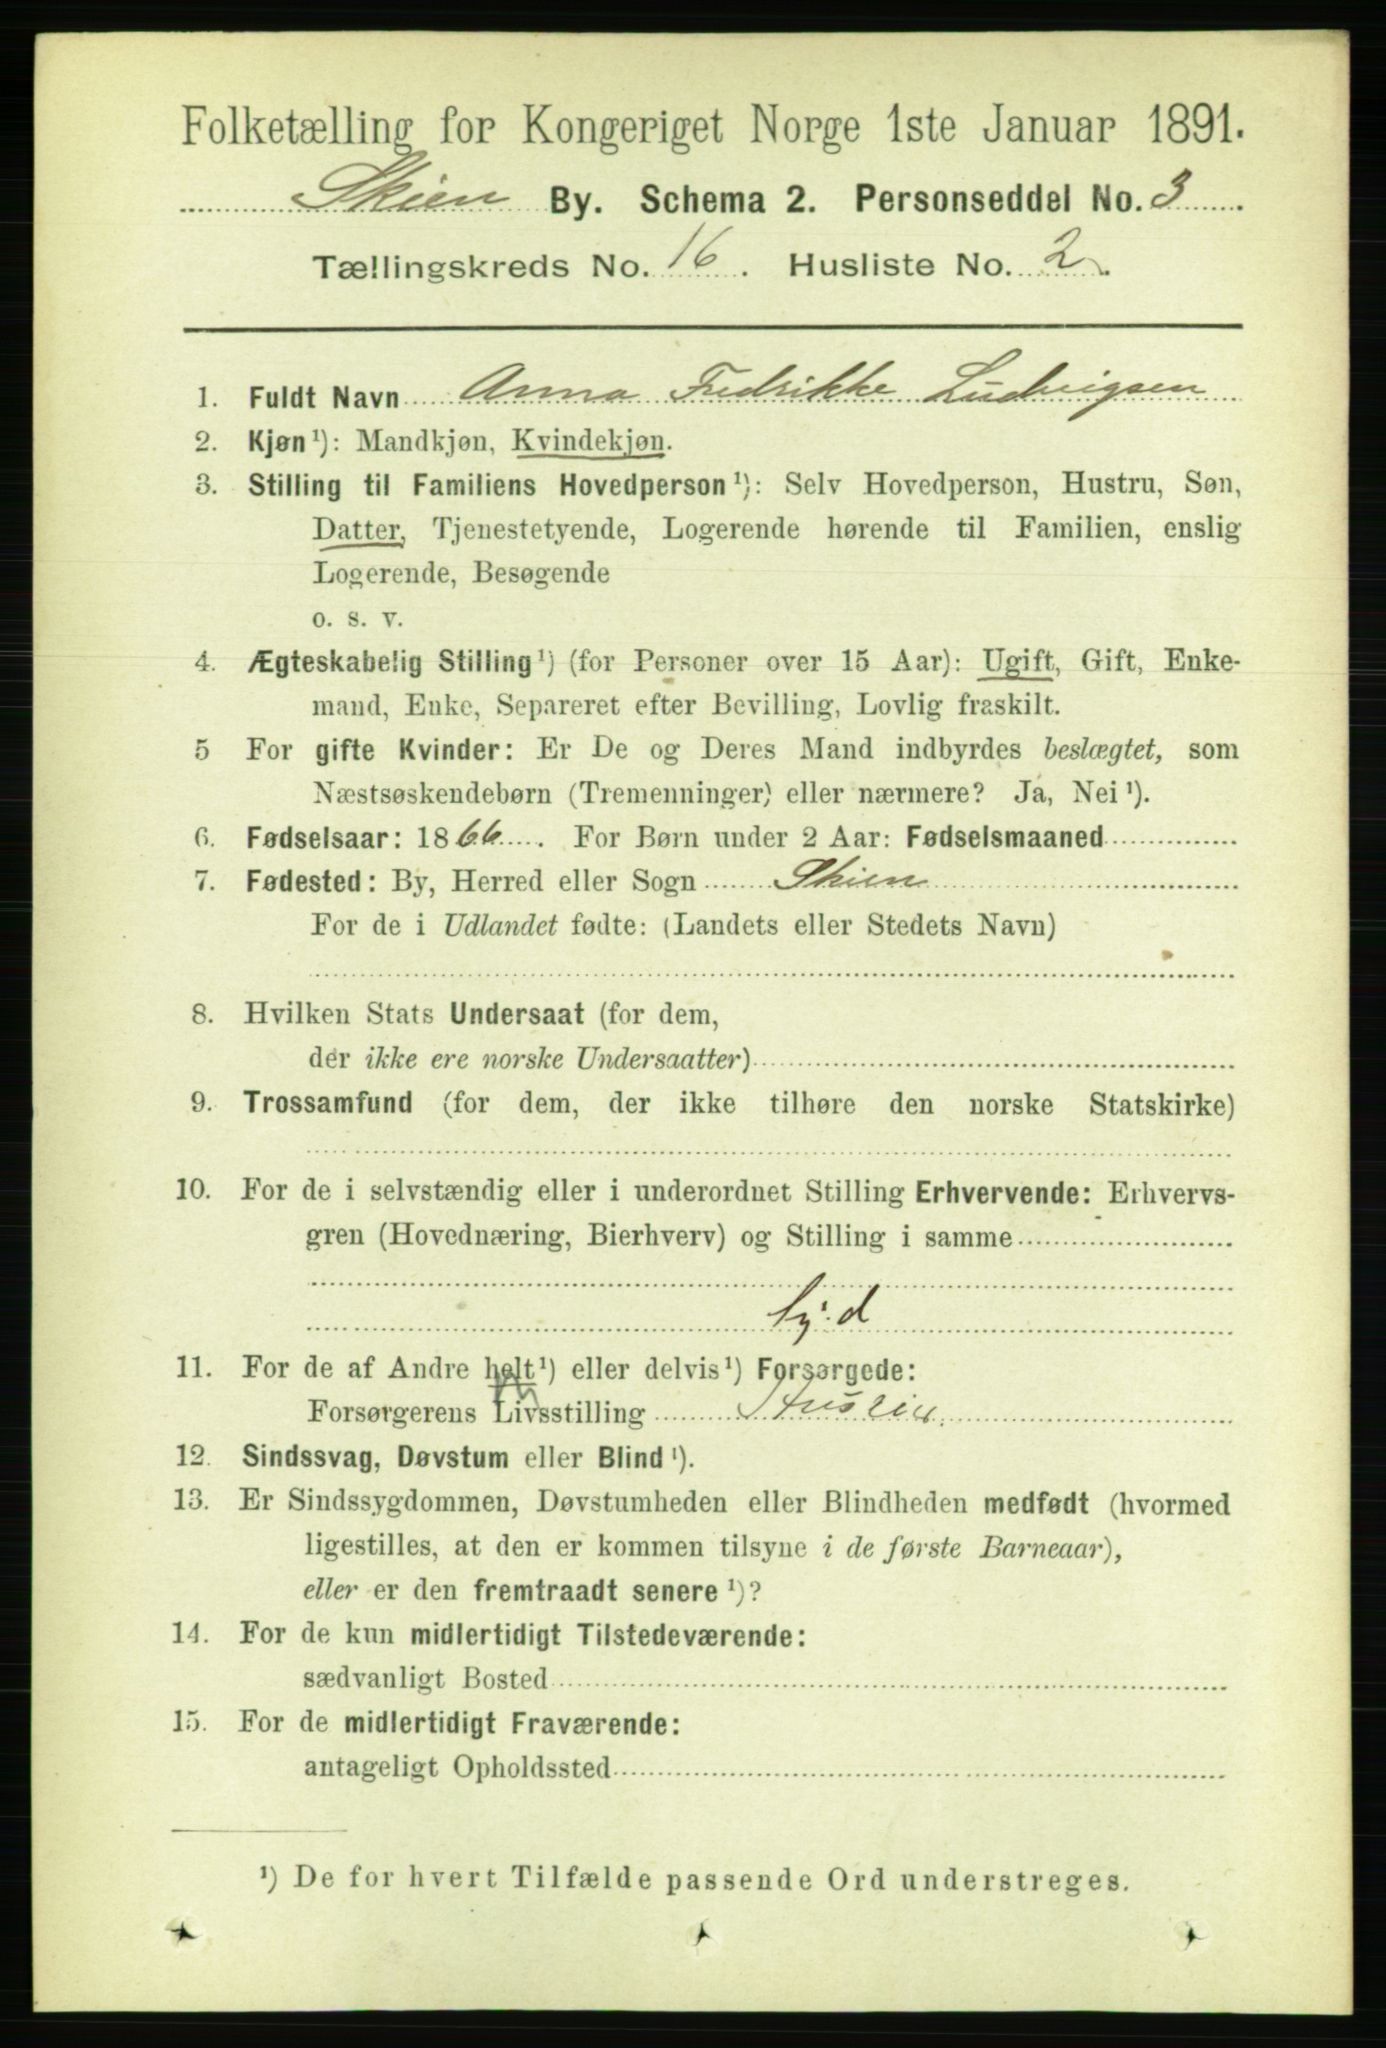 Folketælling for Kongeriget Norge 1ste Januar 1891.
Skien By. Schema 2. Personseddel No. 3
Tællingskreds No. 16. Husliste No. 2.
1. Fuldt Navn Anna Fredrikke Ludvigsen
2. Kjøn¹): Mandkjøn, Kvindekjøn.
3. Stilling til Familiens Hovedperson¹): Selv Hovedperson, Hustru, Søn,
Datter, Tjenestetyende, Logerende hørende til Familien, enslig
Logerende, Besøgende
o. s. v.
4. Ægteskabelig Stilling¹) (for Personer over 15 Aar): Ugift, Gift, Enke-
mand, Enke, Separeret efter Bevilling, Lovlig fraskilt.
5 For gifte Kvinder: Er De og Deres Mand indbyrdes beslægtet, som
Næstsøskendebørn (Tremenninger) eller nærmere? Ja, Nei¹).
6. Fødselsaar: 1866. For Børn under 2 Aar: Fødselsmaaned
7. Fødested: By, Herred eller Sogn Skien
For de i Udlandet fødte: (Landets eller Stedets Navn)
8. Hvilken Stats Undersaat (for dem,
der ikke ere norske Undersaatter)
9. Trossamfund (for dem, der ikke tilhøre den norske Statskirke)
10. For de i selvstændig eller i underordnet Stilling Erhvervende: Erhvervs-
gren (Hovednæring, Bierhverv) og Stilling i samme
11. For de af Andre helt¹) eller delvis¹) Forsørgede:
Forsørgerens Livsstilling
12. Sindssvag, Døvstum eller Blind¹).
13. Er Sindssygdommen, Døvstumheden eller Blindheden medfødt (hvormed
ligestilles, at den er kommen tilsyne i de første Barneaar),
eller er den fremtraadt senere¹)?
14. For de kun midlertidigt Tilstedeværende:
sædvanligt Bosted
15. For de midlertidigt Fraværende:
antageligt Opholdssted
¹) De for hvert Tilfælde passende Ord understreges.